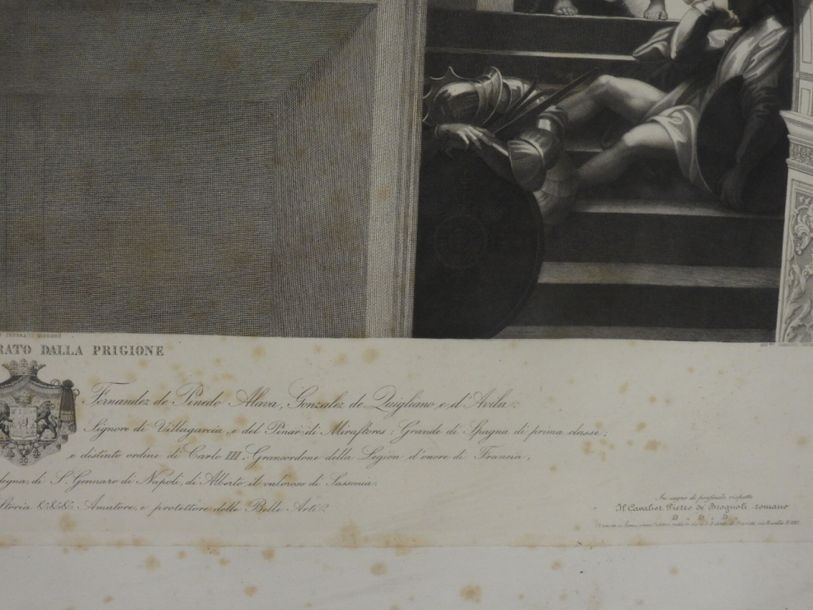 RATO DALLA PRIGIONE
Fernandez de Pinedo Alava, Gonzalez de Quigliano, e d'Avila,
Signore di Villagarcia, e del Pinar di Miraflores, Grande di Spagna di prima classe,
e distinto ordine di Carlo III. Grancordone della Legion d'onore di Francia,
degna, di S. Gennaro di Napoli, di Alberto il valoroso di Sassonia,
Storia &&& Amatore, e protettore delle Belle Arti &
In segno di profondo rispetto
Il Cavalier Pietro de Brognoli romano
D. D. D.